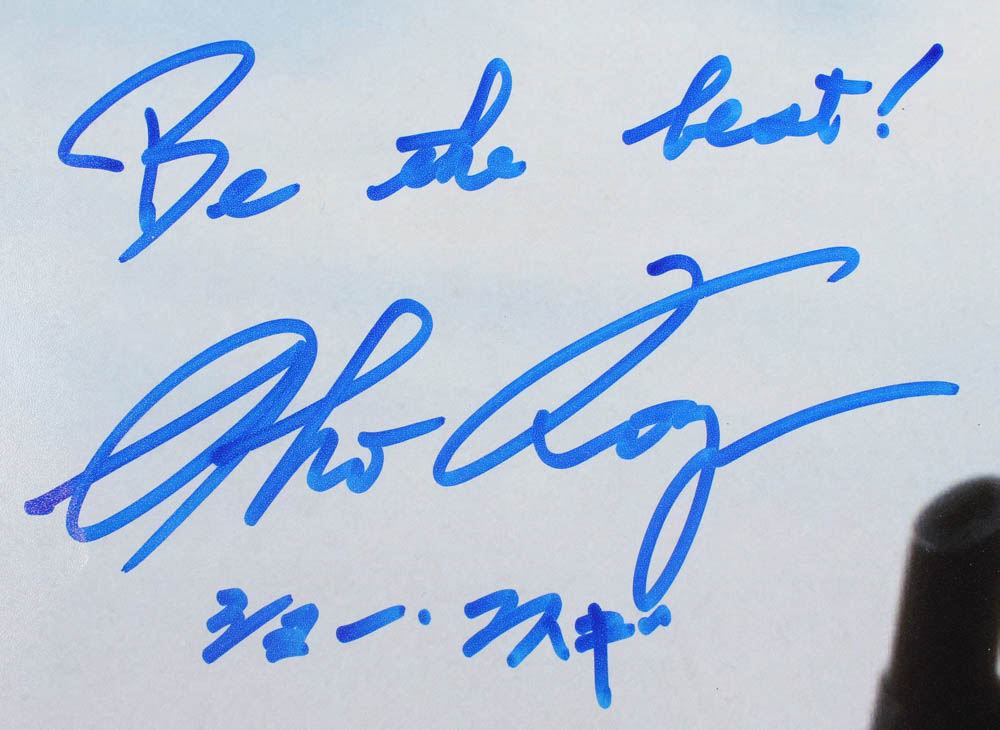 Be the best!
Sho Kosugi
ショー・コスギ